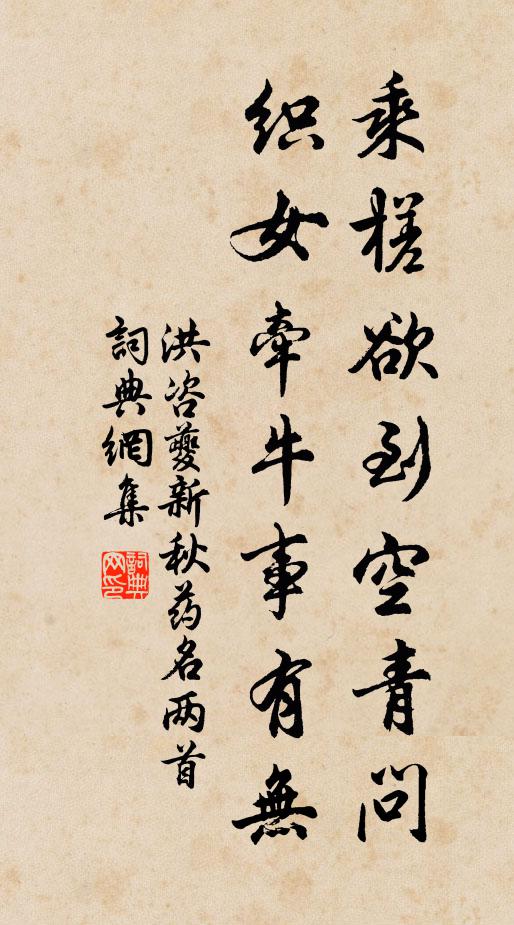 乘槎欲到空青问
织女牵牛事有無
洪咨夔新秋药名两首
詞典網集
詞典网印